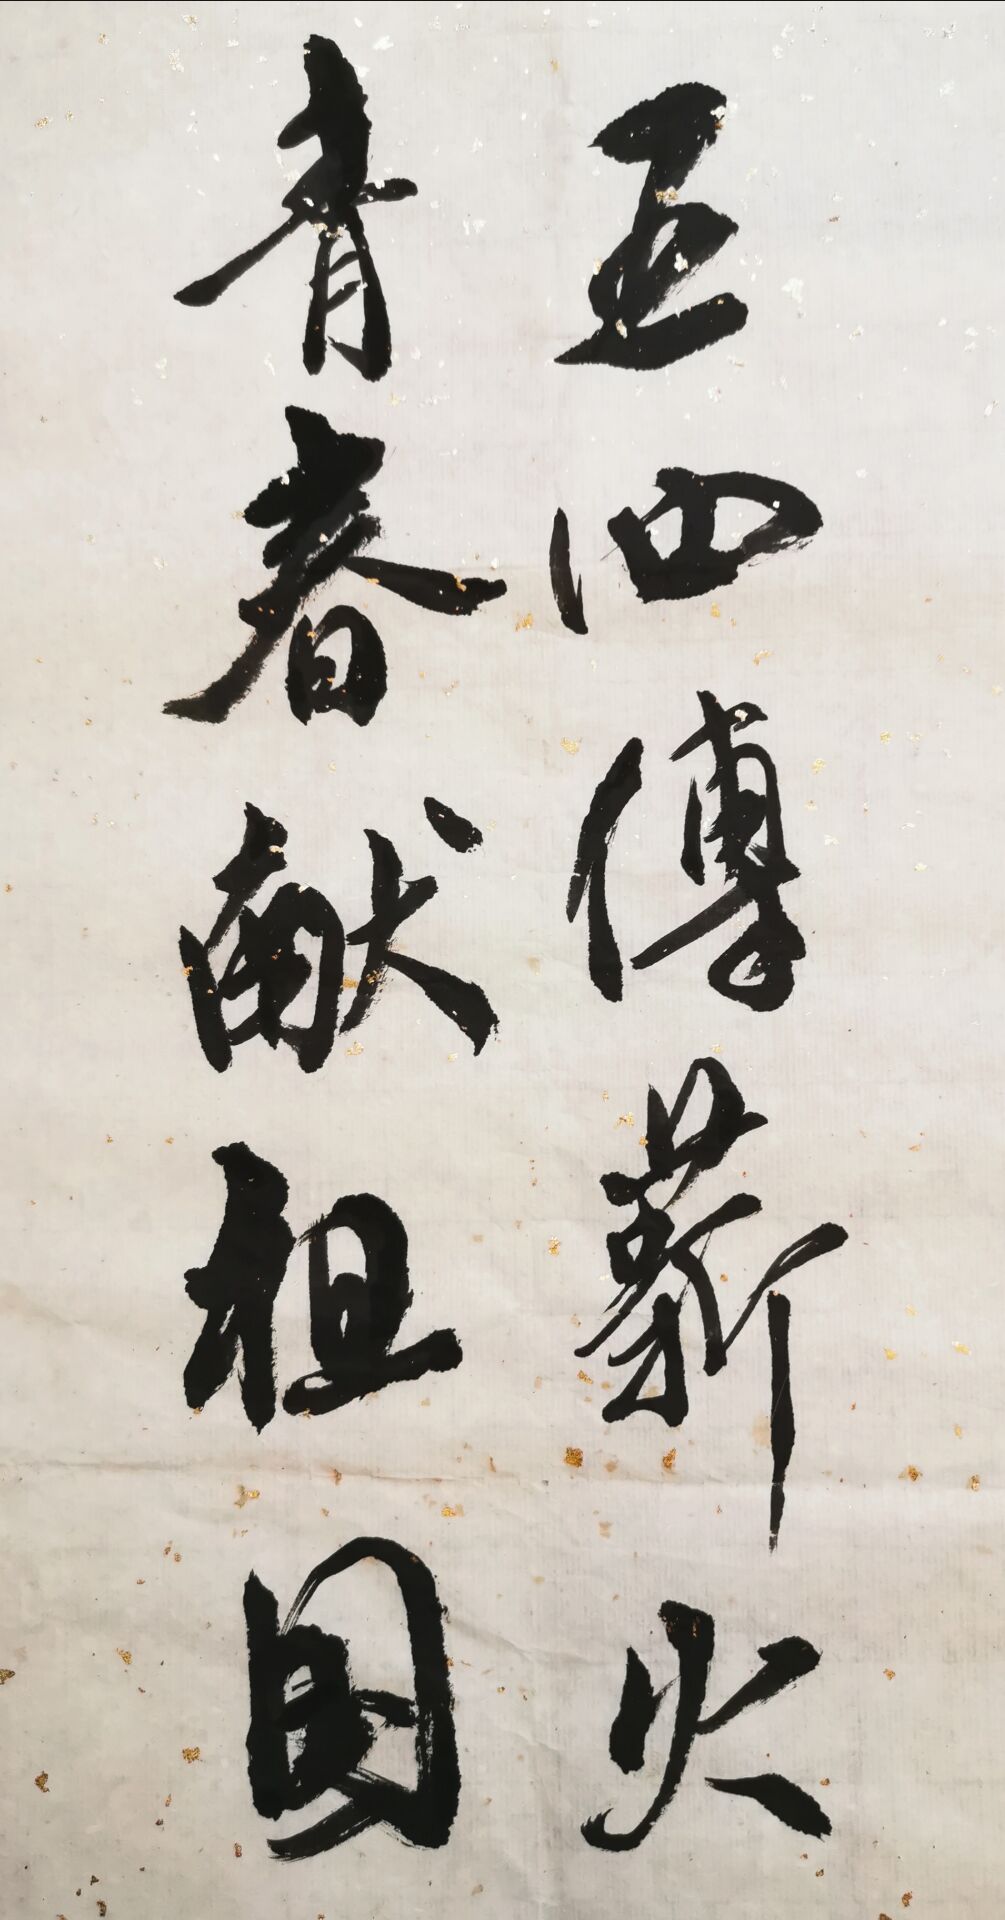 五四傳薪火
青春献祖国